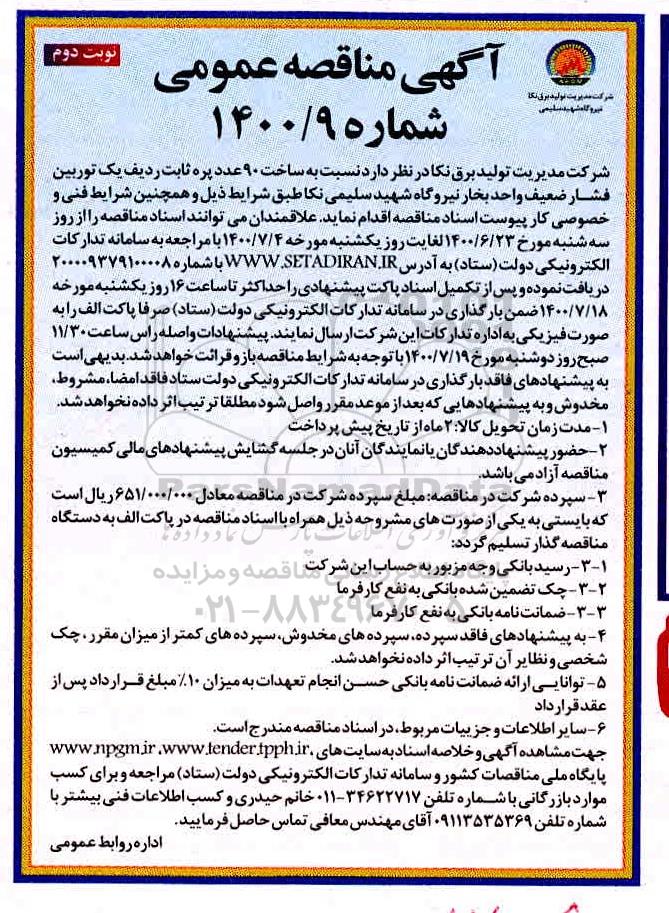 نوبت دوم
شرکت مدیریت تولید برق نکا
نیروگاه شهید سلیمی
آگهی مناقصه عمومی
شماره ۱۴۰۰/۹
شرکت مدیریت تولید برق نکا در نظر دارد نسبت به ساخت ۹۰ عدد پره ثابت ردیف یک توربین
فشار ضعیف واحد بخار نیروگاه شهید سلیمی نکا طبق شرایط ذیل و همچنین شرایط فنی و
خصوصی کار پیوست اسناد مناقصه اقدام نماید. علاقمندان می توانند اسناد مناقصه را از روز
سه شنبه مورخ ۱۴۰۰/۶/۲۳ لغایت روز یکشنبه مورخه ۱۴۰۰/۷/۴ با مراجعه به سامانه تدارکات
الکترونیکی دولت (ستاد) به آدرس WWW.SETADIRAN.IR با شماره ۲۰۰۰۰۹۳۷۹۱۰۰۰۰۸
دریافت نموده و پس از تکمیل اسناد پاکت پیشنهادی را حداکثر تا ساعت ۱۶ روز یکشنبه مورخه
۱۴۰۰/۷/۱۸ ضمن بارگذاری در سامانه تدارکات الکترونیکی دولت (ستاد) صرفا پاکت الف را به
صورت فیزیکی به اداره تدارکات این شرکت ارسال نمایند. پیشنهادات واصله راس ساعت ۱۱/۳۰
صبح روز دوشنبه مورخ ۱۴۰۰/۷/۱۹ با توجه به شرایط مناقصه باز و قرائت خواهد شد. بدیهی است
به پیشنهادهای فاقد بارگذاری در سامانه تدارکات الکترونیکی دولت ستاد فاقد امضا، مشروط،
مخدوش و به پیشنهادهایی که بعد از موعد مقرر واصل شود مطلقا ترتیب اثر داده نخواهد شد.
۱- مدت زمان تحویل کالا: ۲ ماه از تاریخ پیش پرداخت
۲- حضور پیشنهاددهندگان یا نمایندگان آنان در جلسه گشایش پیشنهادهای مالی کمیسیون
مناقصه آزاد می باشد.
۳- سپرده شرکت در مناقصه: مبلغ سپرده شرکت در مناقصه معادل ۶۵۱/۰۰۰/۰۰۰ ریال است
که بایستی به یکی از صورت های مشروحه ذیل همراه با اسناد مناقصه در پاکت الف به دستگاه
مناقصه گذار تسلیم گردد:
۳-۱- رسید بانکی وجه مزبور به حساب این شرکت
۳-۲- چک تضمین شده بانکی به نفع کارفرما
۳-۳- ضمانت نامه بانکی به نفع کارفرما
۴- به پیشنهادهای فاقد سپرده، سپرده های مخدوش، سپرده های کمتر از میزان مقرر، چک
شخصی و نظایر آن ترتیب اثر داده نخواهد شد.
۵- توانایی ارائه ضمانت نامه بانکی حسن انجام تعهدات به میزان ۱۰٪ مبلغ قرارداد پس از
عقد قرارداد
۶- سایر اطلاعات و جزییات مربوط، در اسناد مناقصه مندرج است.
جهت مشاهده آگهی و خلاصه اسناد به سایت های www.npgm.ir ،www.tender.tpph.ir،
پایگاه ملی مناقصات کشور و سامانه تدارکات الکترونیکی دولت (ستاد) مراجعه و برای کسب
موارد بازرگانی با شماره تلفن ۳۴۶۲۲۷۱۷-۰۱۱ خانم حیدری و کسب اطلاعات فنی بیشتر با
شماره تلفن ۰۹۱۱۳۵۳۵۳۶۹ آقای مهندس معافی تماس حاصل فرمایید.
اداره روابط عمومی
ParsNamadData
۰۲۱-۸۸۳۴۹۶۷۰-۵